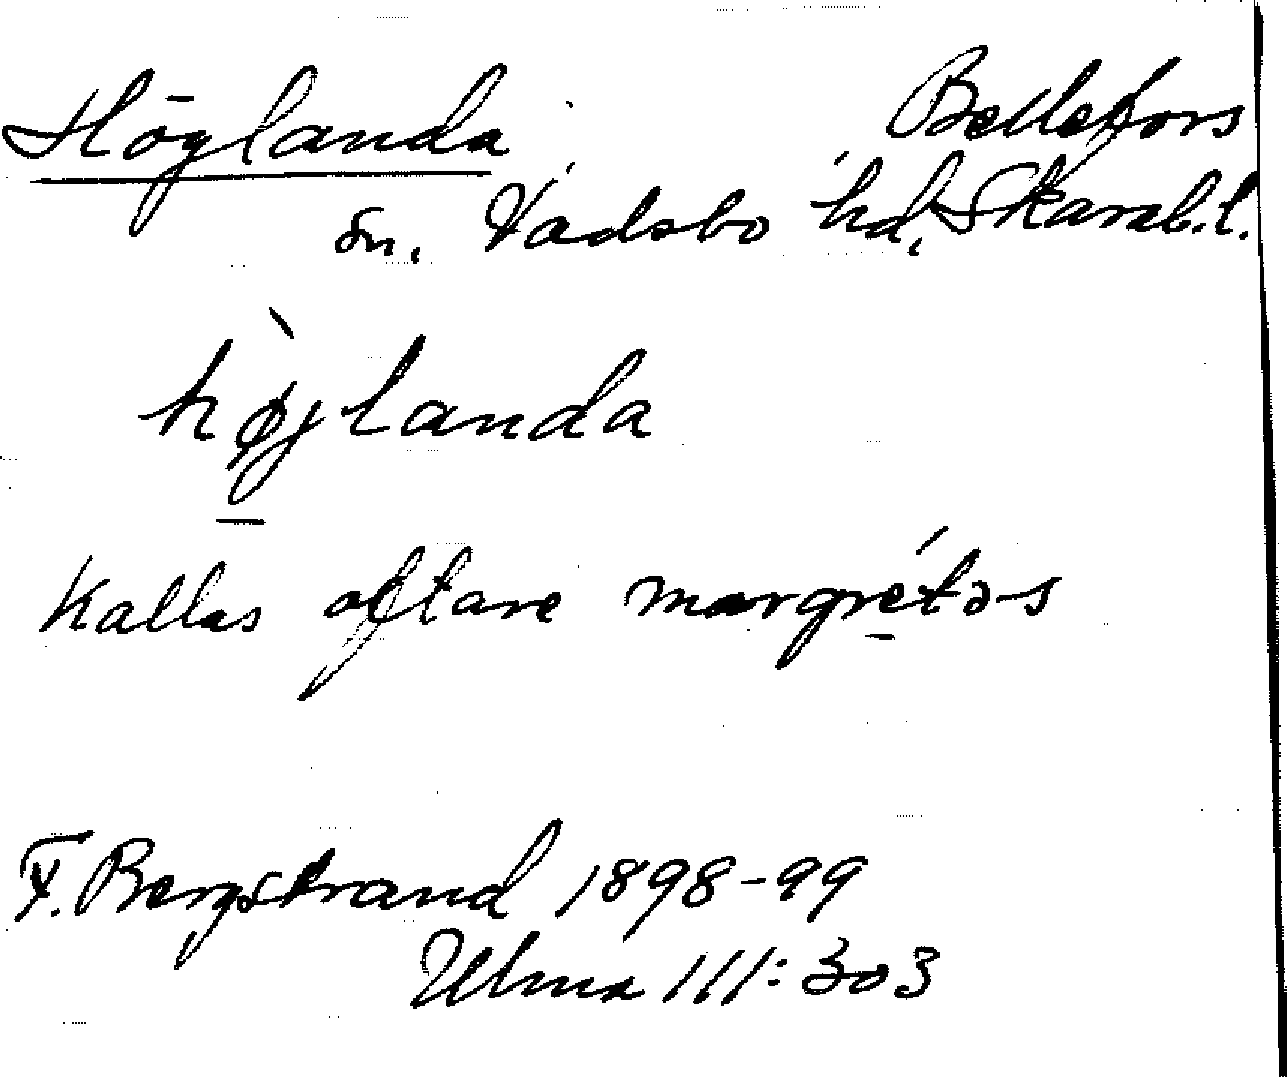 Höglanda Bellefors
sn. Vadsbo hd, Skarab.l.
hø̀jlanda
Kallas oftare margrétəs
F. Bergstrand 1898-99
Ulma 111:303